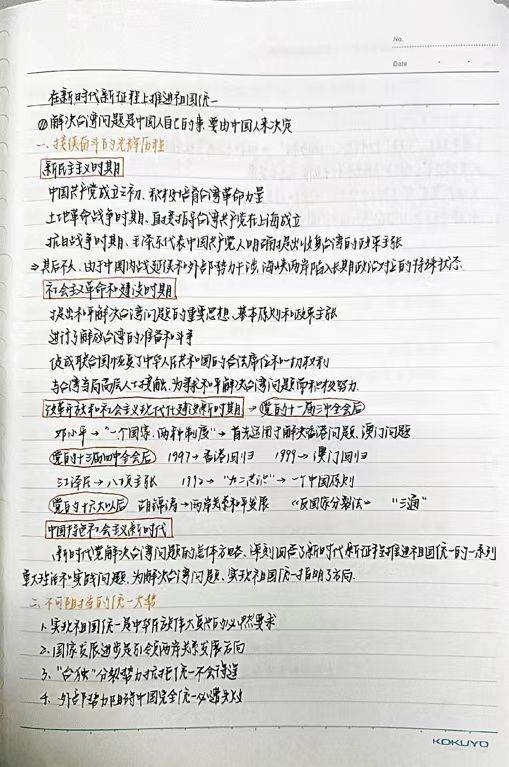 No.
Date
在新时代新征程上推进祖国统一
① 解决台湾问题是中国人自己的事，要由中国人来决定
一、接续奋斗的光辉历程
新民主主义时期
中国共产党成立之初，积极培育台湾革命力量
土地革命战争时期，直接指导台湾共产党在上海成立
抗日战争时期，毛泽东代表中国共产党人明确提出收复台湾的政策主张
⇒ 其后不久，由于中国内战延续和外部势力干涉，海峡两岸陷入长期政治对立的特殊状态.
社会主义革命和建设时期
提出和平解决台湾问题的重要思想、基本原则和政策主张
进行了解放台湾的准备和斗争
促成联合国恢复了中华人民共和国的合法席位和一切权利
与台湾当局高层人士接触，为寻求和平解决台湾问题而积极努力.
改革开放和社会主义现代化建设新时期 → 党的十一届三中全会后
邓小平→"一个国家，两种制度"→首先运用于解决香港问题、澳门问题
党的十三届四中全会后 1997→香港回归 1999→澳门回归
江泽民→八项主张 1992→"九二共识"→一个中国原则
党的十六大以后 胡锦涛→两岸关系和平发展 《反国家分裂法》 "三通"
中国特色社会主义新时代
新时代党解决台湾问题的总体方略，深刻回答了新时代新征程推进祖国统一的一系列
重大理论和实践问题，为解决台湾问题、实现祖国统一指明了方向.
二、不可阻挡的统一大势
1. 实现祖国统一是中华民族伟大复兴的必然要求
2. 国家发展进步是引领两岸关系发展方向
3. "台独"分裂势力抗拒统一不会得逞
4. 外部势力阻碍中国完全统一必遭失败
KOKUYO